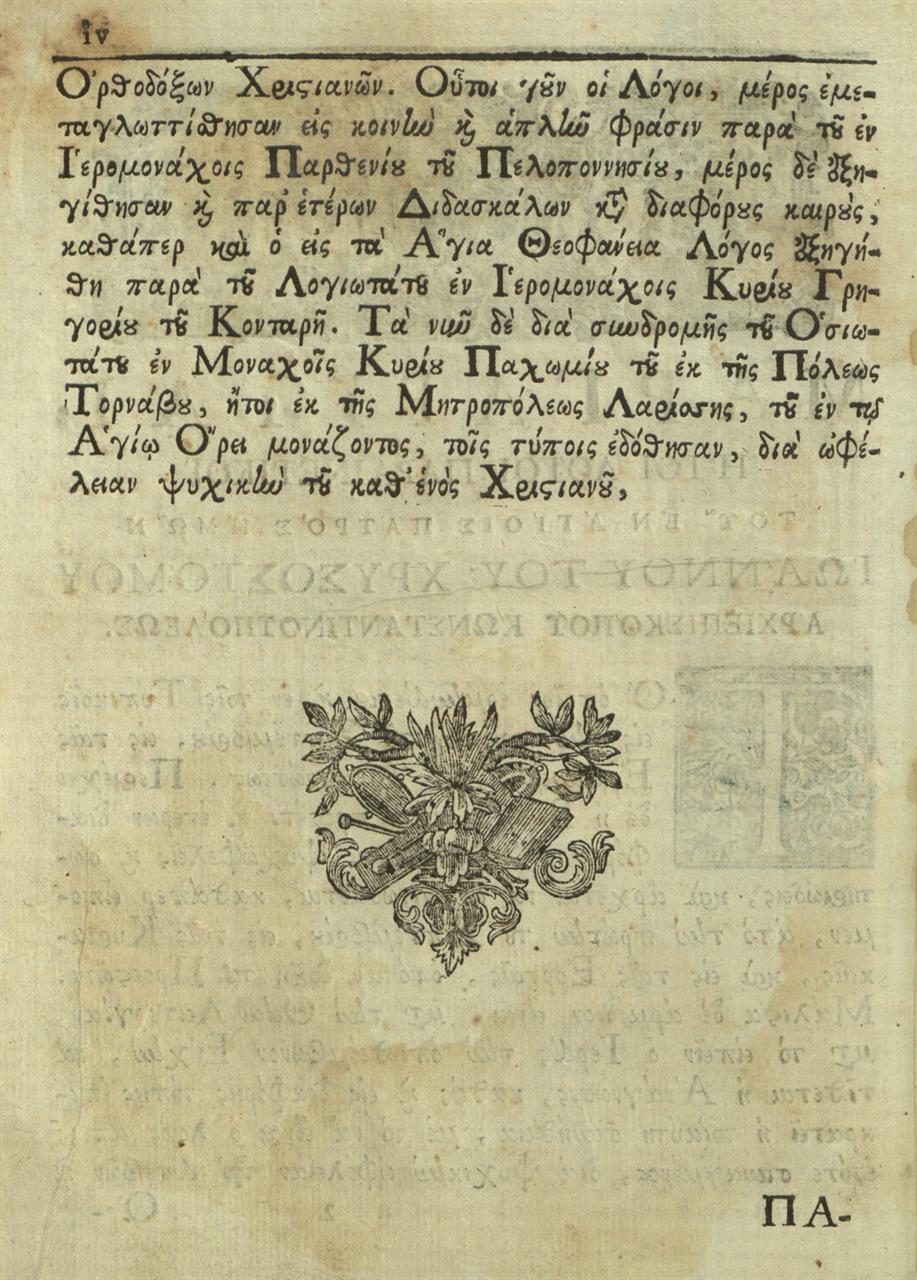 iv
Ὀρθοδόξων Χριϛιανῶν. Οὗτοι γοῦν οἱ Λόγοι, μέρος ἐμε-
ταγλωττίθησαν εἰς κοινὴν ϗ ἁπλῆν φράσιν παρὰ τοῦ ἐν
Ἱερομονάχοις Παρθενίου τοῦ Πελοποννησίου, μέρος δὲ ἐξη-
γίθησαν ϗ παρ' ἑτέρων Διδασκάλων κατὰ διαφόρους καιροὺς,
καθάπερ καὶ ὁ εἰς τὰ Ἅγια Θεοφάνεια Λόγος ἐξηγή-
θη παρὰ τοῦ Λογιωτάτου ἐν Ἱερομονάχοις Κυρίου Γρη-
γορίου τοῦ Κονταρῆ. Τὰ νῦν δὲ διὰ συνδρομῆς τοῦ Ὁσιω-
τάτου ἐν Μοναχοῖς Κυρίου Παχωμίου τοῦ ἐκ τῆς Πόλεως
Τορνάβου, ἤτοι ἐκ τῆς Μητροπόλεως Λαρίσσης, τοῦ ἐν τῷ
Ἁγίῳ Ὄρει μονάζοντος, τοῖς τύποις ἐδόθησαν, διὰ ὠφέ-
λειαν ψυχικὴν τοῦ καθ' ἑνὸς Χριϛιανοῦ,
ΠΑ-